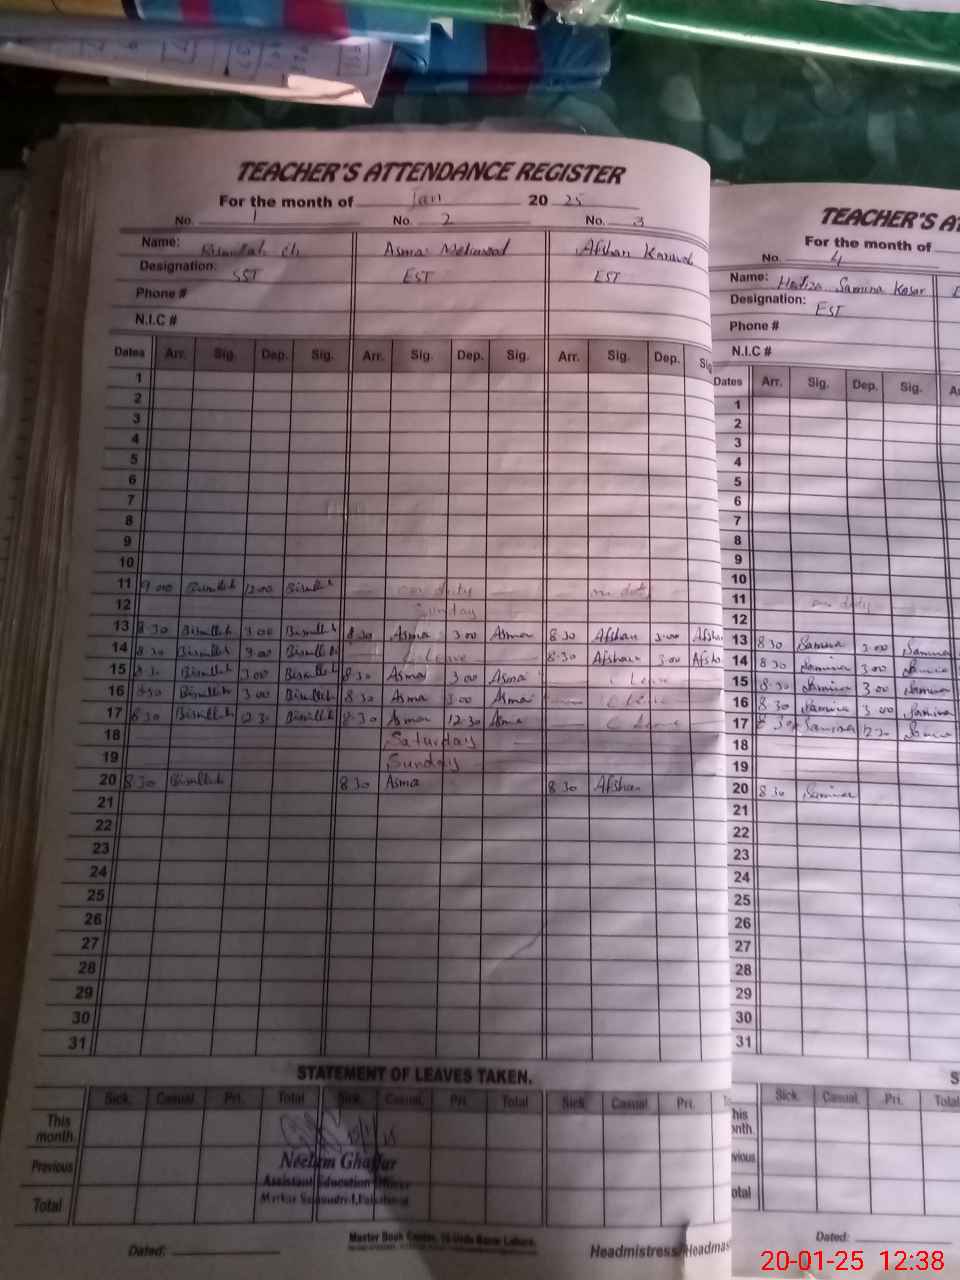 TEACHER'S ATTENDANCE REGISTER
For the month of Jan 20 25
No. 1 No. 2 No. 3
Name: Bismillah Asma Mehmood Afshan
Designation: SST EST EST
Phone #
N.I.C #
Dates Arr. Sig. Dep. Sig. Arr. Sig. Dep. Sig. Arr. Sig. Dep. Sig
1
2
3
4
5
6
7
8
9
10
11 9.00 Bismillah 12.00 Bismillah on duty on duty
12 Sunday
13 8.30 Bismillah 3.00 Bismillah 8.30 Asma 3.00 Asma 8.30 Afshan 3.00 Afshan
14 8.30 Bismillah 3.00 Bismillah Leave 8.30 Afshan 3.00 Afsha
15 8.30 Bismillah 3.00 Bismillah 8.30 Asma 3.00 Asma C Leave
16 8.30 Bismillah 3.00 Bismillah 8.30 Asma 3.00 Asma C Leave
17 8.30 Bismillah 12.30 Bismillah 8.30 Asma 12.30 Asma C Leave
18 Saturday
19 Sunday
20 8.30 Bismillah 8.30 Asma 8.30 Afshan
21
22
23
24
25
26
27
28
29
30
31
STATEMENT OF LEAVES TAKEN.
Sick. Casual. Pri. Total Sick. Casual. Pri. Total Sick. Casual Pri.
This month
Previous
Total
Neelam Ghaffar
Assistant Education Officer
Dated:
Master Book Center, Urdu Bazar Lahore.
Headmistress/Headmas
TEACHER'S A
For the month of
No. 4
Name: Hafiza Samina Kosar
Designation: EST
Phone #
N.I.C #
Dates Arr. Sig. Dep. Sig.
1
2
3
4
5
6
7
8
9
10
11 on duty
12
13 8.30 Samina 3.00 Samina
14 8.30 Samina 3.00 Samina
15 8.30 Samina 3.00 Samina
16 8.30 Samina 3.00 Samina
17 8.30 Samina 12.30 Samina
18
19
20 8.30 Samina
21
22
23
24
25
26
27
28
29
30
31
S
Sick. Casual. Pri. Total
his
onth
vious
otal
Dated:
20-01-25 12:38